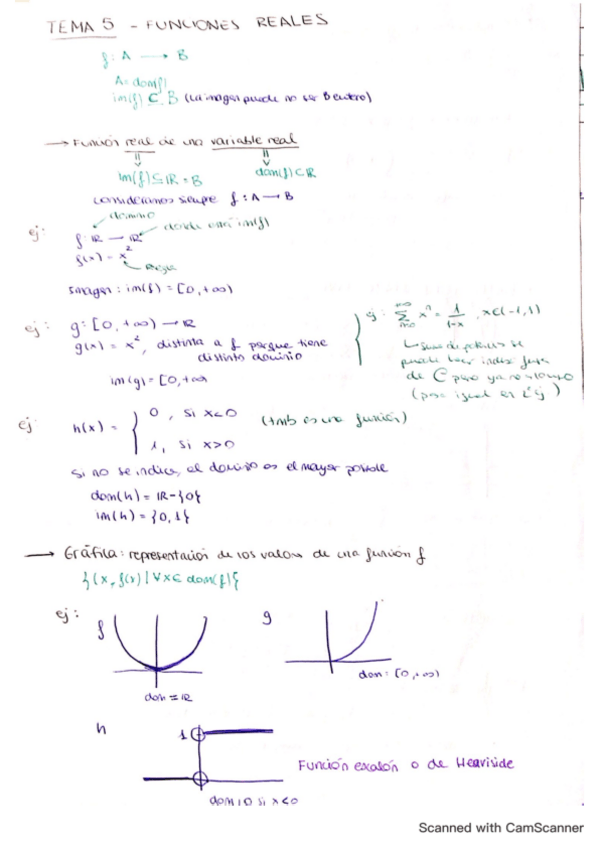 TEMA 5 - FUNCIONES REALES
f: A → B
A = dom(f)
im(f) ⊆ B (La imagen puede no ser B entero)
→ Función real de una variable real
im(f) ⊆ IR = B
dom(f) ⊂ IR
consideramos siempre f: A → B
dominio
donde está im(f)
ej:
f: IR → IR
f(x) = x²
Regla
Imagen: im(f) = [0, +∞)
ej: g: [0, +∞) → IR
g(x) = x², distinta a f porque tiene
distinto dominio
im(g) = [0, +∞
ej: ∑ xⁿ = 1/1-x, x ∈ (-1, 1)
puede
de C pero ya no
ej h(x) = { 0, si x<0
1, si x>0
(tmb es una función)
si no se indica, el dominio es el mayor posible
dom(h) = IR - {0}
im(h) = {0, 1}
→ Gráfica: representación de los valores de una función f
{(x, f(x)) | ∀x ∈ dom(f)}
ej: f
dom = IR
g
dom: [0, +∞)
h
1
Función escalón o de Heaviside
si x<0
Scanned with CamScanner